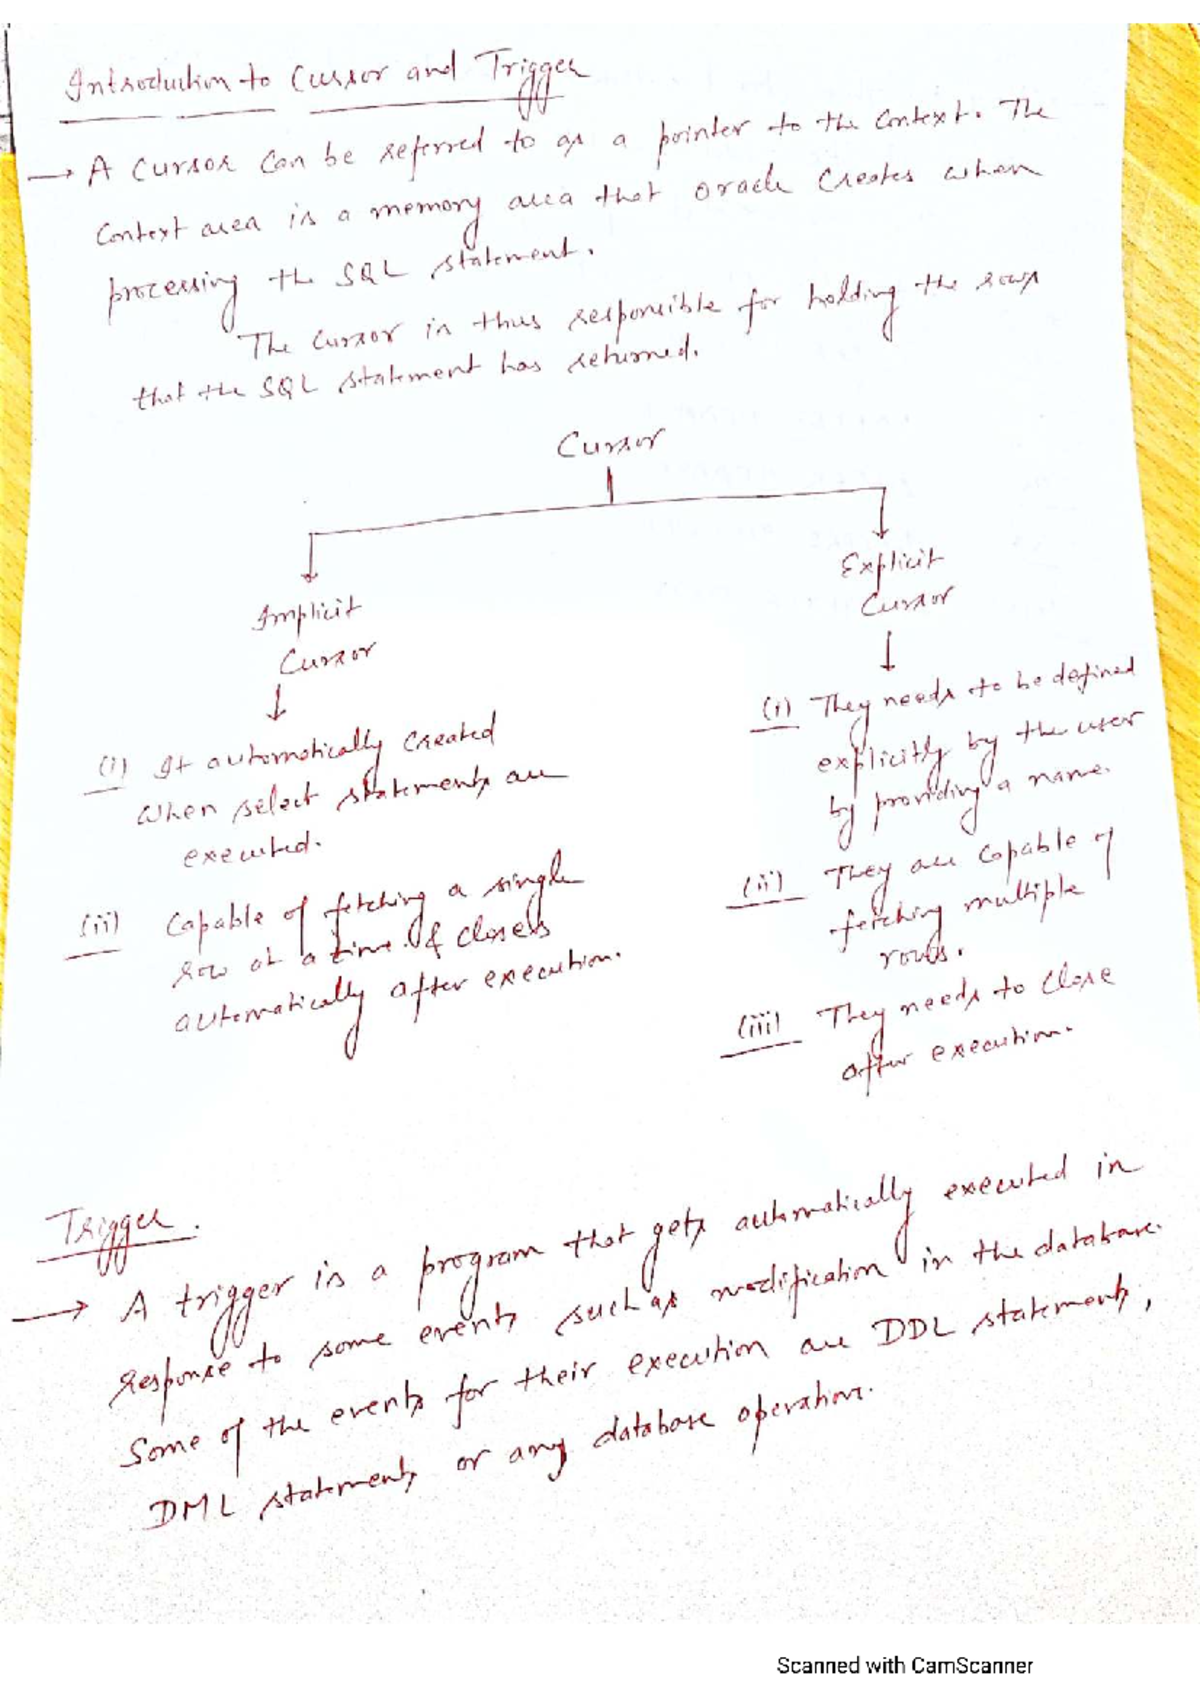 Introduction to Cursor and Trigger
→ A Cursor Can be referred to as a pointer to the Context. The
Context area is a memory area that oracle Creates when
processing the SQL statement.
The Cursor is thus responsible for holding the rows
that the SQL statement has returned.
Cursor
Implicit
Cursor
(i) It automatically Created
when select statements are
executed.
(ii) Capable of fetching a single
row at a time & closes
automatically after execution.
Explicit
Cursor
(i) They needs to be defined
explicitly by the user
by providing a name.
(ii) They are Capable of
fetching multiple
rows.
(iii) They needs to Close
after execution.
Trigger.
→ A trigger is a program that gets automatically executed in
response to some events such as modification in the database.
Some of the events for their execution are DDL statements,
DML statements or any database operation.
Scanned with CamScanner